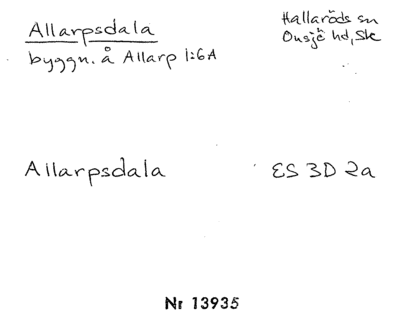 Allarpsdala
Hallaröds sn
Onsjö hd, Sk
byggn. å Allarp 1:6A
Allarpsdala
ES 3D 2a
Nr 13935